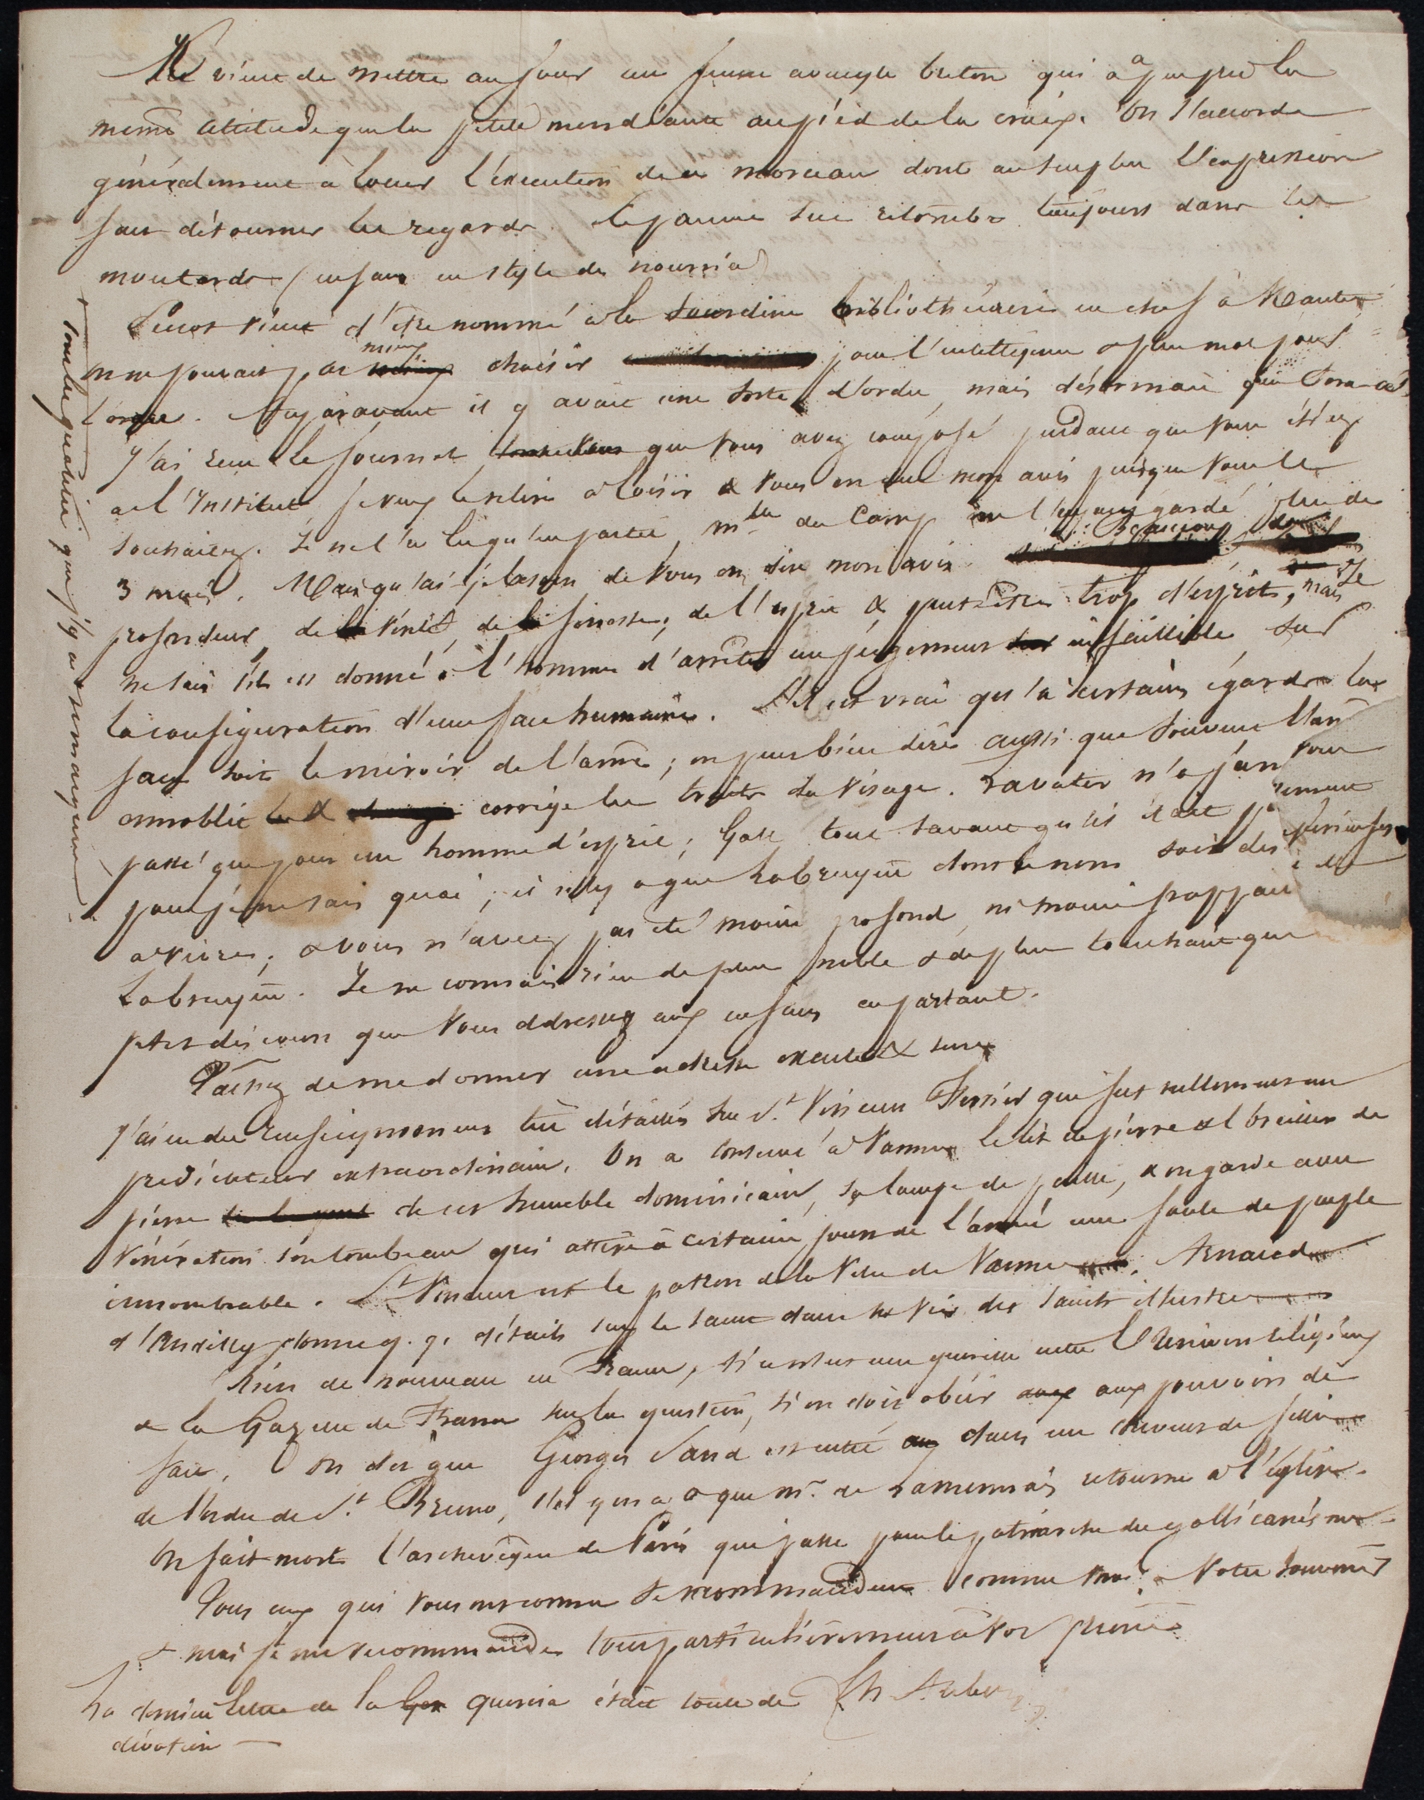 vient de mettre au jour un jeune aveugle breton qui a à peu près la
même attitude que la petite mendiante au pied de la croix. On s'accorde
généralement à louer l'exécution de ce morceau dont au surplus l'expression
fait détourner les regards. Le pauvre retombe toujours dans les
moutards (enfans en style de nourrice)
vient d'être nommé à la sourdine bibliothécaire en chef à Nantes
on ne pouvait pas mieux choisir pour l'intelligence & plus mal pour
l'ordre. Auparavant il y avait une sorte d'ordre, mais désormais que sera-ce?
J'ai reçu le journal que vous avez composé pendant que vous étiez
à l'Institut je veux le relire à loisir & vous en dire mon avis puisque vous le
souhaitez. Je ne l'ai lu qu'en partie, du Camp me l'ayant gardé plus de
3 mois. Mais qu'ai-je besoin de vous en dire mon avis. Beaucoup de
profondeur, de vérité, de finesse, de l'esprit & peut-être trop d'esprit, mais je
ne sais s'il est donné à l'homme d'arrêter un jugement infaillible sur
la configuration d'une face humaine. S'il est vrai qu'à certains égards la
face soit le miroir de l'âme; on peut bien dire aussi que souvent l'âme
ennoblit & corrige les traits du visage. Lavater n'a jamais
passé que pour un homme d'esprit; Gall tout savant qu'il était
pour je ne sais quoi; il n'y a que Labruyère dont le nom soit
à vivre; & vous n'avez pas été moins profond, ni moins frappant
Labruyère. Je ne connais rien de plus noble & de plus touchant que
discours que vous adressez aux enfans en partant.
Tâchez de me donner une adresse exacte & sure
J'ai eu des renseignemens très détaillés sur St Vincent Ferrier qui fut réellement un
prédicateur extraordinaire. On a conservé à Vannes le lit de pierre & l'oreiller de
pierre de cet humble dominicain, sa lampe de, & on garde avec
vénération son tombeau qui attire à certains jours de l'année une foule de peuple
innombrable. St Vincent est le patron de la ville de Vannes. Arnauld
d'Andilly donne q. q. détails sur le saint dans ses vies des saints illustres
Rien de nouveau en France, si ce n'est une querelle entre l'Univers religieux
& la Gazette de France sur la question, si on doit obéir aux pouvoirs de
fait. On dit que Georges Sand est entré dans un couvent de filles
de l'ordre de St Bruno, il y en a & que Mr. de Lamennais retourne à l'église.
On fait mort l'archevêque de Paris qui passe pour le patriarche du gallicanisme.
Tous ceux qui vous ont connu se recommandent comme moi à votre souvenir
& moi je me recommande tout particulièrement à vos prières
La dernière lettre de la était toute de
dévotion
toute qualité que j'y ai remarquée